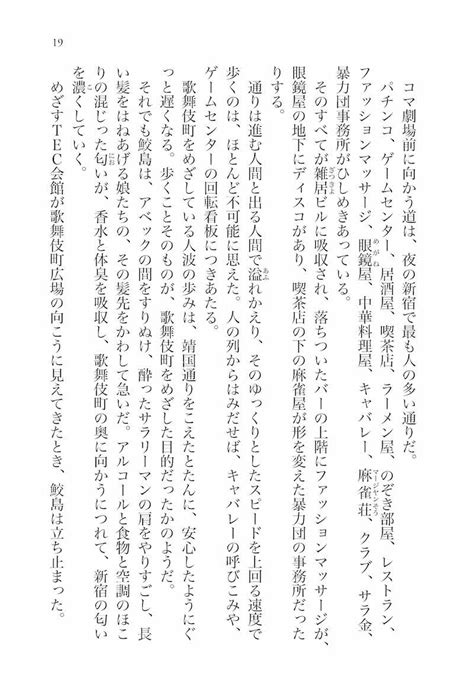 19
コマ劇場前に向かう道は、夜の新宿で最も人の多い通りだ。
パチンコ、ゲームセンター、居酒屋、喫茶店、ラーメン屋、のぞき部屋、レストラン、
ファッションマッサージ、眼鏡屋、中華料理屋、キャバレー、麻雀荘、クラブ、サラ金、
暴力団事務所がひしめきあっている。
そのすべてが雑居ビルに吸収され、落ちついたバーの上階にファッションマッサージが、
眼鏡屋の地下にディスコがあり、喫茶店の下の麻雀屋が形を変えた暴力団の事務所だった
りする。
通りは進む人間と出る人間で溢れかえり、そのゆっくりとしたスピードを上回る速度で
歩くのは、ほとんど不可能に思えた。人の列からはみだせば、キャバレーの呼びこみや、
ゲームセンターの回転看板につきあたる。
歌舞伎町をめざしている人波の歩みは、靖国通りをこえたとたんに、安心したようにぐ
っと遅くなる。歩くことそのものが、歌舞伎町をめざした目的だったかのようだ。
それでも鮫島は、アベックの間をすりぬけ、酔ったサラリーマンの肩をやりすごし、長
い髪をはねあげる娘たちの、その髪先をかわして急いだ。アルコールと食物と空調のほこ
りの混じった匂いが、香水と体臭を吸収し、歌舞伎町の奥に向かうにつれて、新宿の匂い
を濃くしていく。
めざすTEC会館が歌舞伎町広場の向こうに見えてきたとき、鮫島は立ち止まった。